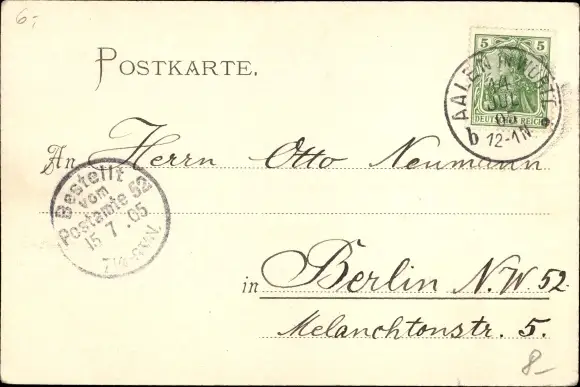 6.-
POSTKARTE.
5 5
DEUTSCHES REICH
AALEN IN WÜRTT.
14
JUL
05
12-1N
b
An Herrn Otto Neumann
Bestellt
vom
Postamte 52
15 7. 05
in Berlin N.W. 52.
Melanchtonstr. 5.
8-